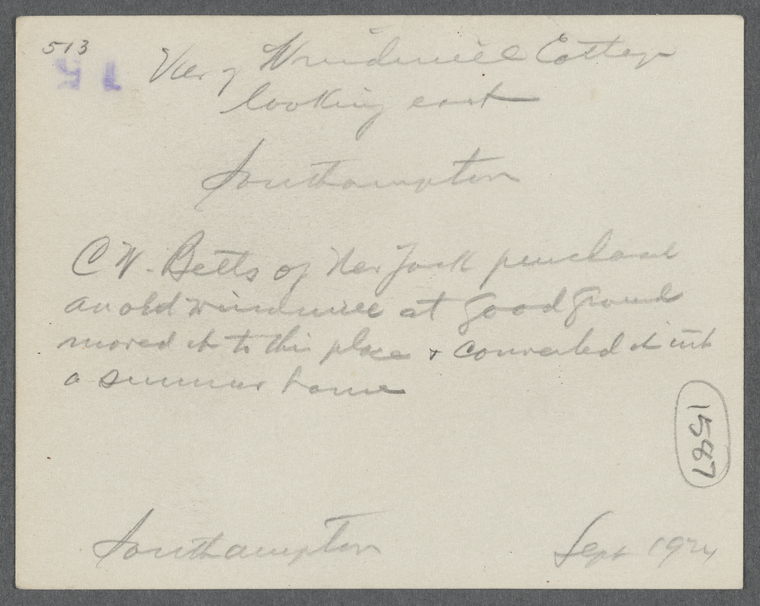 513
15
View of Windmill Cottage
looking east
Southampton
C W. Betts of New York purchased
an old windmill at Good Ground
moved it to this place & converted it into
a summer home
1587
Southampton Sept 1924